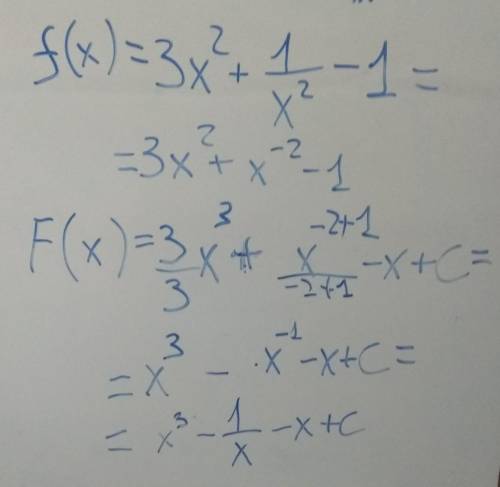 f(x) = 3x² + 1/x² - 1 =
= 3x² + x⁻² - 1
F(x) = 3/3 x³ + x⁻²⁺¹/-2+1 - x + C =
= x³ - x⁻¹ - x + C =
= x³ - 1/x - x + C